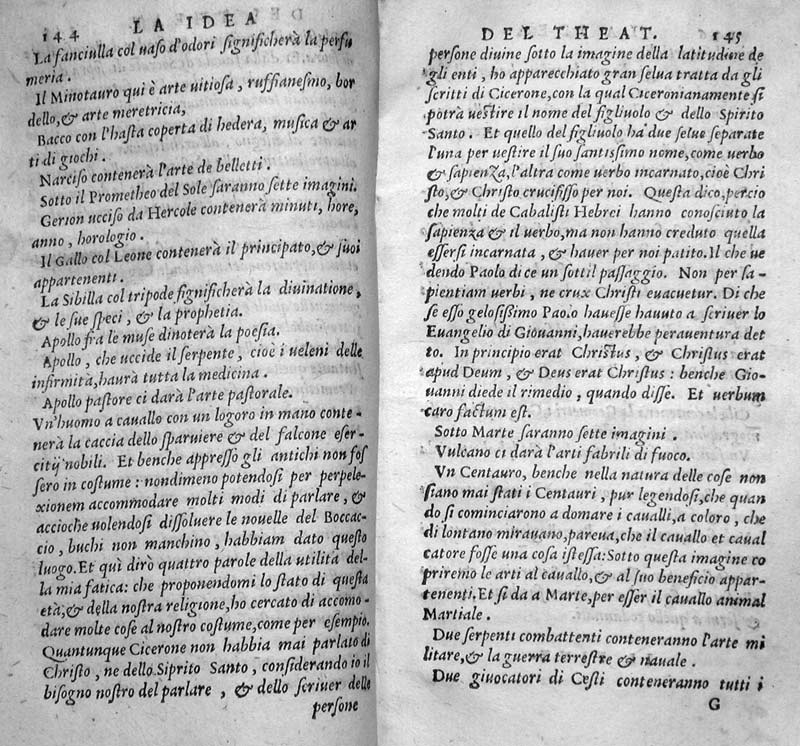 144 LA IDEA
La fanciulla col uaſo d'odori ſignificherà la perfu
meria.
Il Minotauro qui è arte uitioſa, ruffianeſmo, bor
dello, & arte meretricia,
Bacco con l'haſta coperta di hedera, muſica & ar
ti di giochi.
Narciſo contenerà l'arte de belletti.
Sotto il Prometheo del Sole ſaranno ſette imagini.
Gerion ucciſo da Hercole contenerà minuti, hore,
anno, horologio.
Il Gallo col Leone contenerà il principato, & ſuoi
appartenenti.
La Sibilla col tripode ſignificherà la diuinatione,
& le ſue ſpeci, & la prophetia.
Apollo fra le muſe dinoterà la poeſia.
Apollo, che uccide il ſerpente, cioè i ueleni delle
infirmità, haurà tutta la medicina.
Apollo paſtore ci darà l'arte paſtorale.
Vn'huomo a cauallo con un logoro in mano conte-
nerà la caccia dello ſparuiere & del falcone eſer-
citij nobili. Et benche appreſſo gli antichi non foſ
ſero in coſtume: nondimeno potendoſi per perpele-
xionem accommodare molti modi di parlare, &
accioche uolendoſi diſſoluere le nouelle del Boccac-
cio, buchi non manchino, habbiam dato queſto
luogo. Et quì dirò quattro parole della utilità del-
la mia fatica: che proponendomi lo ſtato di queſta
età, & della noſtra religione, ho cercato di accomo-
dare molte coſe al noſtro coſtume, come per eſempio.
Quantunque Cicerone non habbia mai parlato di
Chriſto, ne dello Siprito Santo, conſiderando io il
biſogno noſtro del parlare, & dello ſcriuer delle
perſone
DEL THEAT. 145
perſone diuine ſotto la imagine della latitudine de
gli enti, ho apparecchiato gran ſelua tratta da gli
ſcritti di Cicerone, con la qual Ciceronianamente ſi
potrà ueſtire il nome del figliuolo & dello Spirito
Santo. Et quello del figliuolo ha due ſelue ſeparate
l'una per ueſtire il ſuo ſantiſſimo nome, come uerbo
& ſapienza, l'altra come uerbo incarnato, cioè Chri
ſto, & Chriſto crucifiſſo per noi. Queſta dico, percio
che molti de Cabaliſti Hebrei hanno conoſciuto la
ſapienza & il uerbo, ma non hanno creduto quella
eſſerſi incarnata, & hauer per noi patito. Il che ue
dendo Paolo dice un ſottil paſſaggio. Non per ſa-
pientiam uerbi, ne crux Chriſti euacuetur. Di che
ſe eſſo geloſiſſimo Paolo haueſſe hauuto a ſcriuer lo
Euangelio di Giouanni, hauerebbe perauentura det
to. In principio erat Chriſtus, & Chriſtus erat
apud Deum, & Deus erat Chriſtus: benche Gio-
uanni diede il rimedio, quando diſſe. Et uerbum
caro factum eſt.
Sotto Marte ſaranno ſette imagini.
Vulcano ci darà l'arti fabrili di fuoco.
Vn Centauro, benche nella natura delle coſe non
ſiano mai ſtati i Centauri, pur legendoſi, che quan
do ſi cominciarono a domare i caualli, a coloro, che
di lontano mirauano, pareua, che il cauallo et caual
catore foſſe una coſa iſteſſa: Sotto queſta imagine co
priremo le arti al cauallo, & al ſuo beneficio appar-
tenenti. Et ſi da a Marte, per eſſer il cauallo animal
Martiale.
Due ſerpenti combattenti conteneranno l'arte mi
litare, & la guerra terreſtre & nauale.
Due giuocatori di Ceſti conteneranno tutti i
G